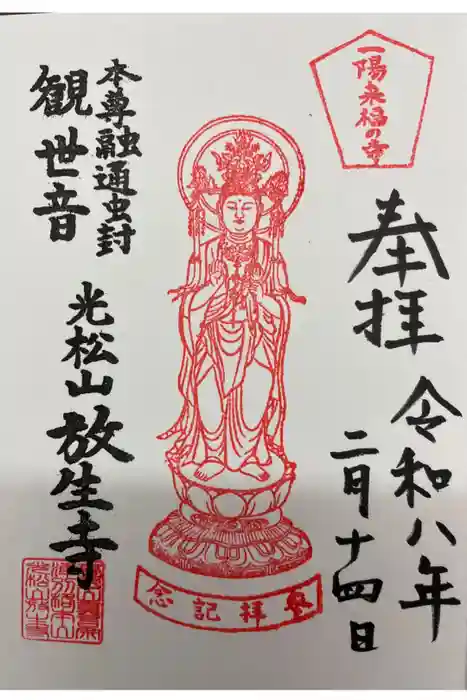 一陽来福の寺
奉拝
令和八年
二月十四日
参拝記念
本尊融通虫封
観世音
光松山放生寺